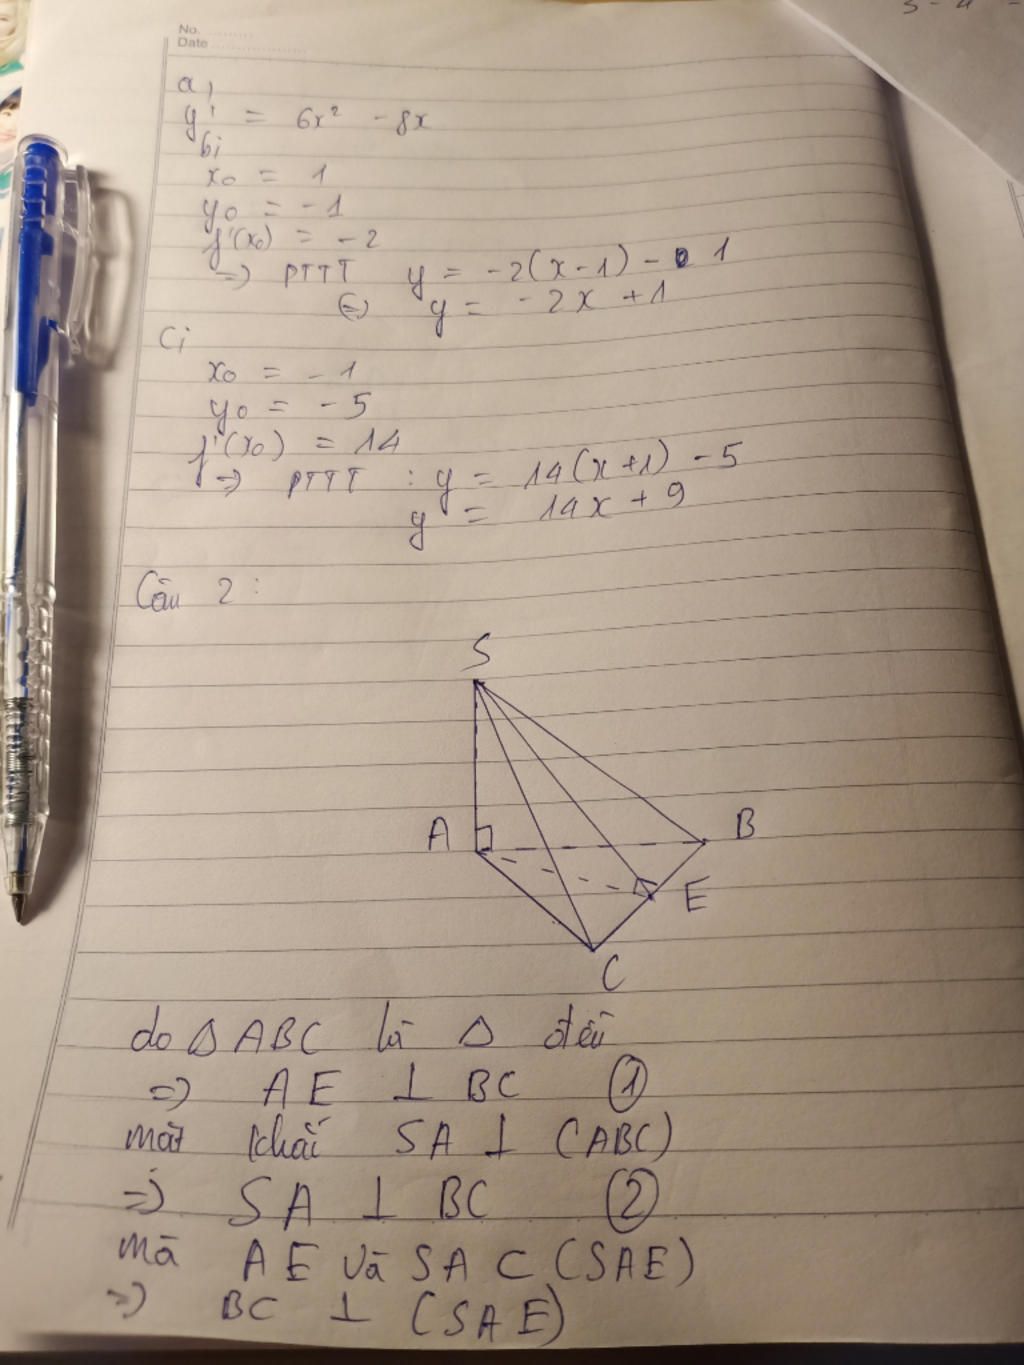 No. ..........
Date ....................
a,
y' = 6x² - 8x
b;
x₀ = 1
y₀ = -1
f'(x₀) = -2
=> PTTT y = -2(x-1) - 1
<=> y = -2x + 1
C;
x₀ = -1
y₀ = -5
f'(x₀) = 14
=> PTTT : y = 14(x+1) - 5
y = 14x + 9
Câu 2 :
S
A
B
E
C
do Δ ABC là Δ đều
=> AE ⊥ BC ①
mặt khác SA ⊥ (ABC)
=> SA ⊥ BC ②
mà AE và SA ⊂ (SAE)
=> BC ⊥ (SAE)